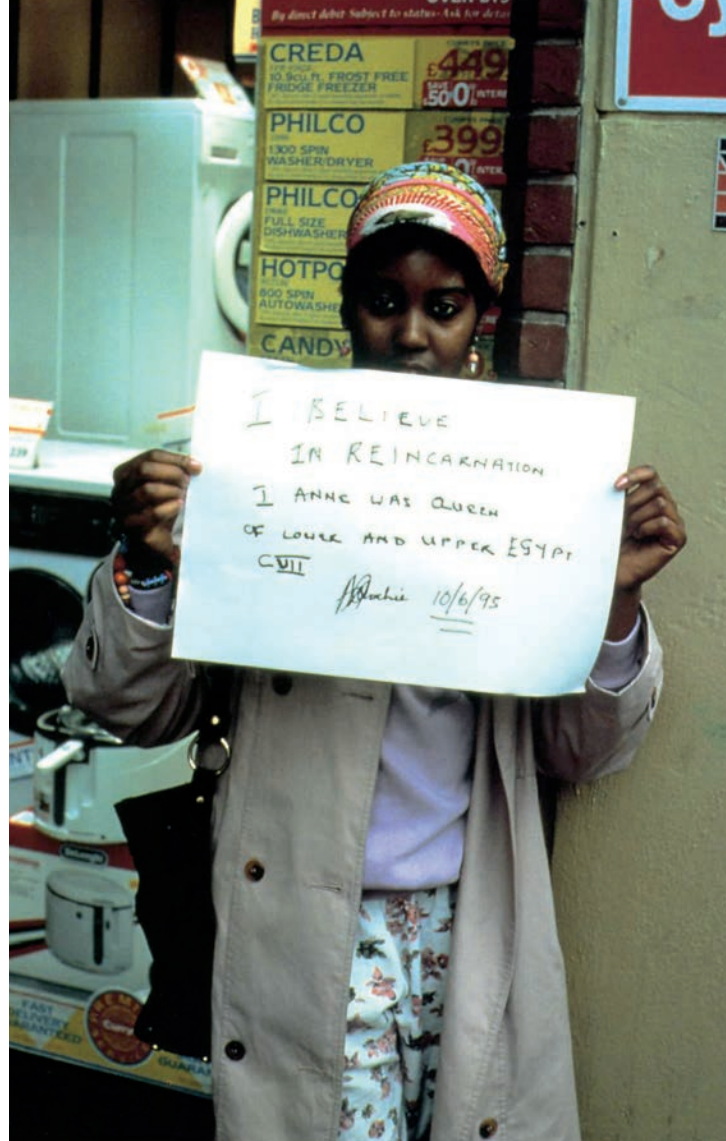 By direct debit Subject to status - Ask for
CREDA
10.9cu.ft. FROST FREE
FRIDGE FREEZER
£449
SAVE
£50
0%
PHILCO
1300 SPIN
WASHER/DRYER
£399
PHILCO
FULL SIZE
DISHWASHER
HOTPO
800 SPIN
AUTOWASHER
CANDY
I BELIEVE
IN REINCARNATION
I ANNE WAS QUEEN
OF LOWER AND UPPER EGYPT
CVII
10/6/95
DeLonghi
FAST
DELIVERY